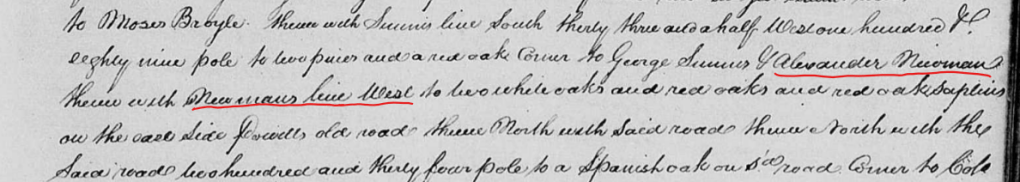 to Moses Broyle. thence with Sumns line South therty three and a half West one hundred &.
eighty nine pole to two pines and a red oak Corner to George Sumns & Alexander Newman
thence with Newmans line West to two white oaks and red oaks and red oak Saplins
on the east Side Powells old road thence North with Said road thence North with the
Said road two hundred and therty four pole to a Spanish oak on Sd road Corner to Cole